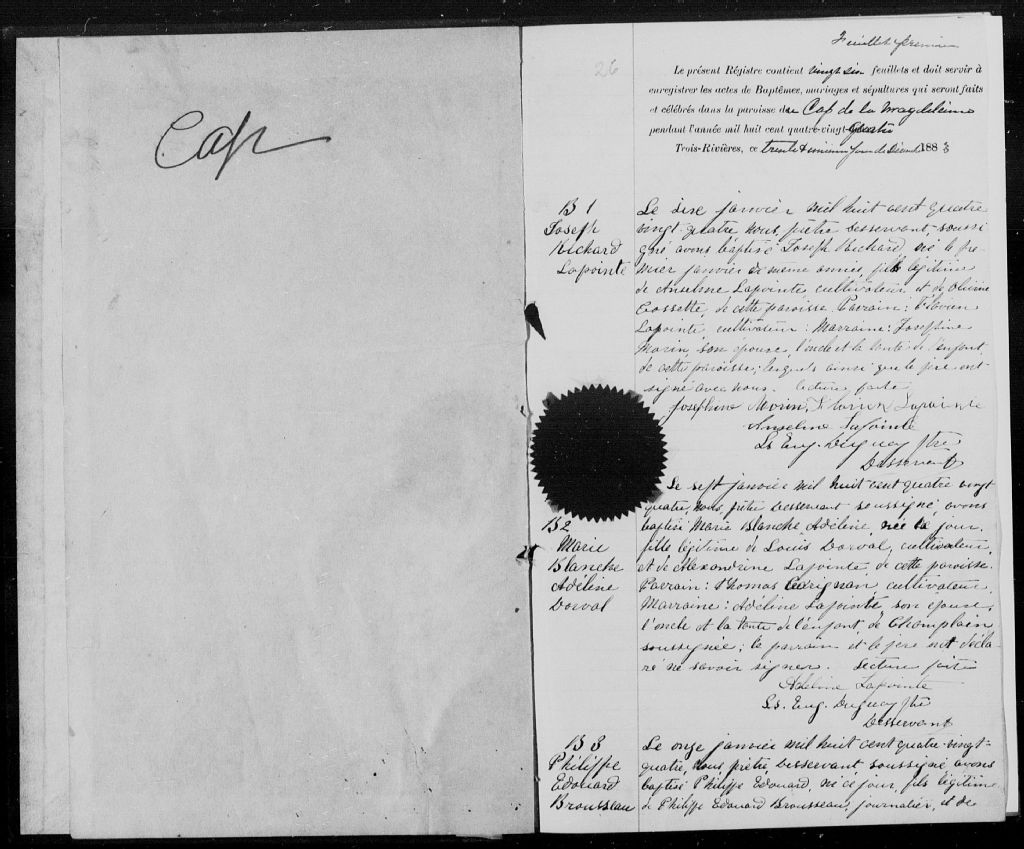 Cap
26
Feuillet premier
Le présent Régistre contient vingt six feuillets et doit servir à
enregistrer les actes de Baptêmes, mariages et sépultures qui seront faits
et célébrés dans la paroisse du Cap de la Magdeleine
pendant l'année mil huit cent quatre-vingt-quatre
Trois-Rivières, ce trente & unieme jour de Décembre 1883
B 1
Joseph
Richard
Lapointe
Le six janvier mil huit cent quatre
vingt-quatre nous, prêtre desservant, soussi
gné avons baptisé Joseph Richard, né le pre-
mier janvier de même année, fils légitime
de Anselme Lapointe, cultivateur et de Olivine
Cossette, de cette paroisse. Parrain: Flavien
Lapointe cultivateur: Marraine: Josephine
Morin, son épouse, l'oncle et la tante de l'enfant,
de cette paroisse; lesquels ainsi que le père ont
signé avec nous. Lecture faite
Josephine Morin, Flavien Lapointe
Anselme Lapointe
Ls Eug. Duguay Ptre
Desservant
B 2
Marie
Blanche
Adéline
Dorval
Le sept janvier mil huit cent quatre vingt
quatre, nous, prêtre desservant soussigné, avons
baptisé Marie Blanche Adéline, née ce jour,
fille légitime de Louis Dorval, cultivateur,
et de Alexandrine Lapointe, de cette paroisse.
Parrain: Thomas Carignan, cultivateur,
Marraine: Adéline Lapointe son épouse,
l'oncle et la tante de l'enfant, de Champlain
soussignée; le parrain et le père ont décla-
ré ne savoir signer. Lecture faite
Adeline Lapointe
Ls. Eug. Duguay Ptre
Desservant
B 3
Philippe
Edouard
Brousseau
Le onze janvier mil huit cent quatre-vingt-
quatre, nous, prêtre desservant soussigné avons
baptisé Philippe Edouard, né ce jour, fils légitime
de Philippe Edouard Brousseau, journalier, et de